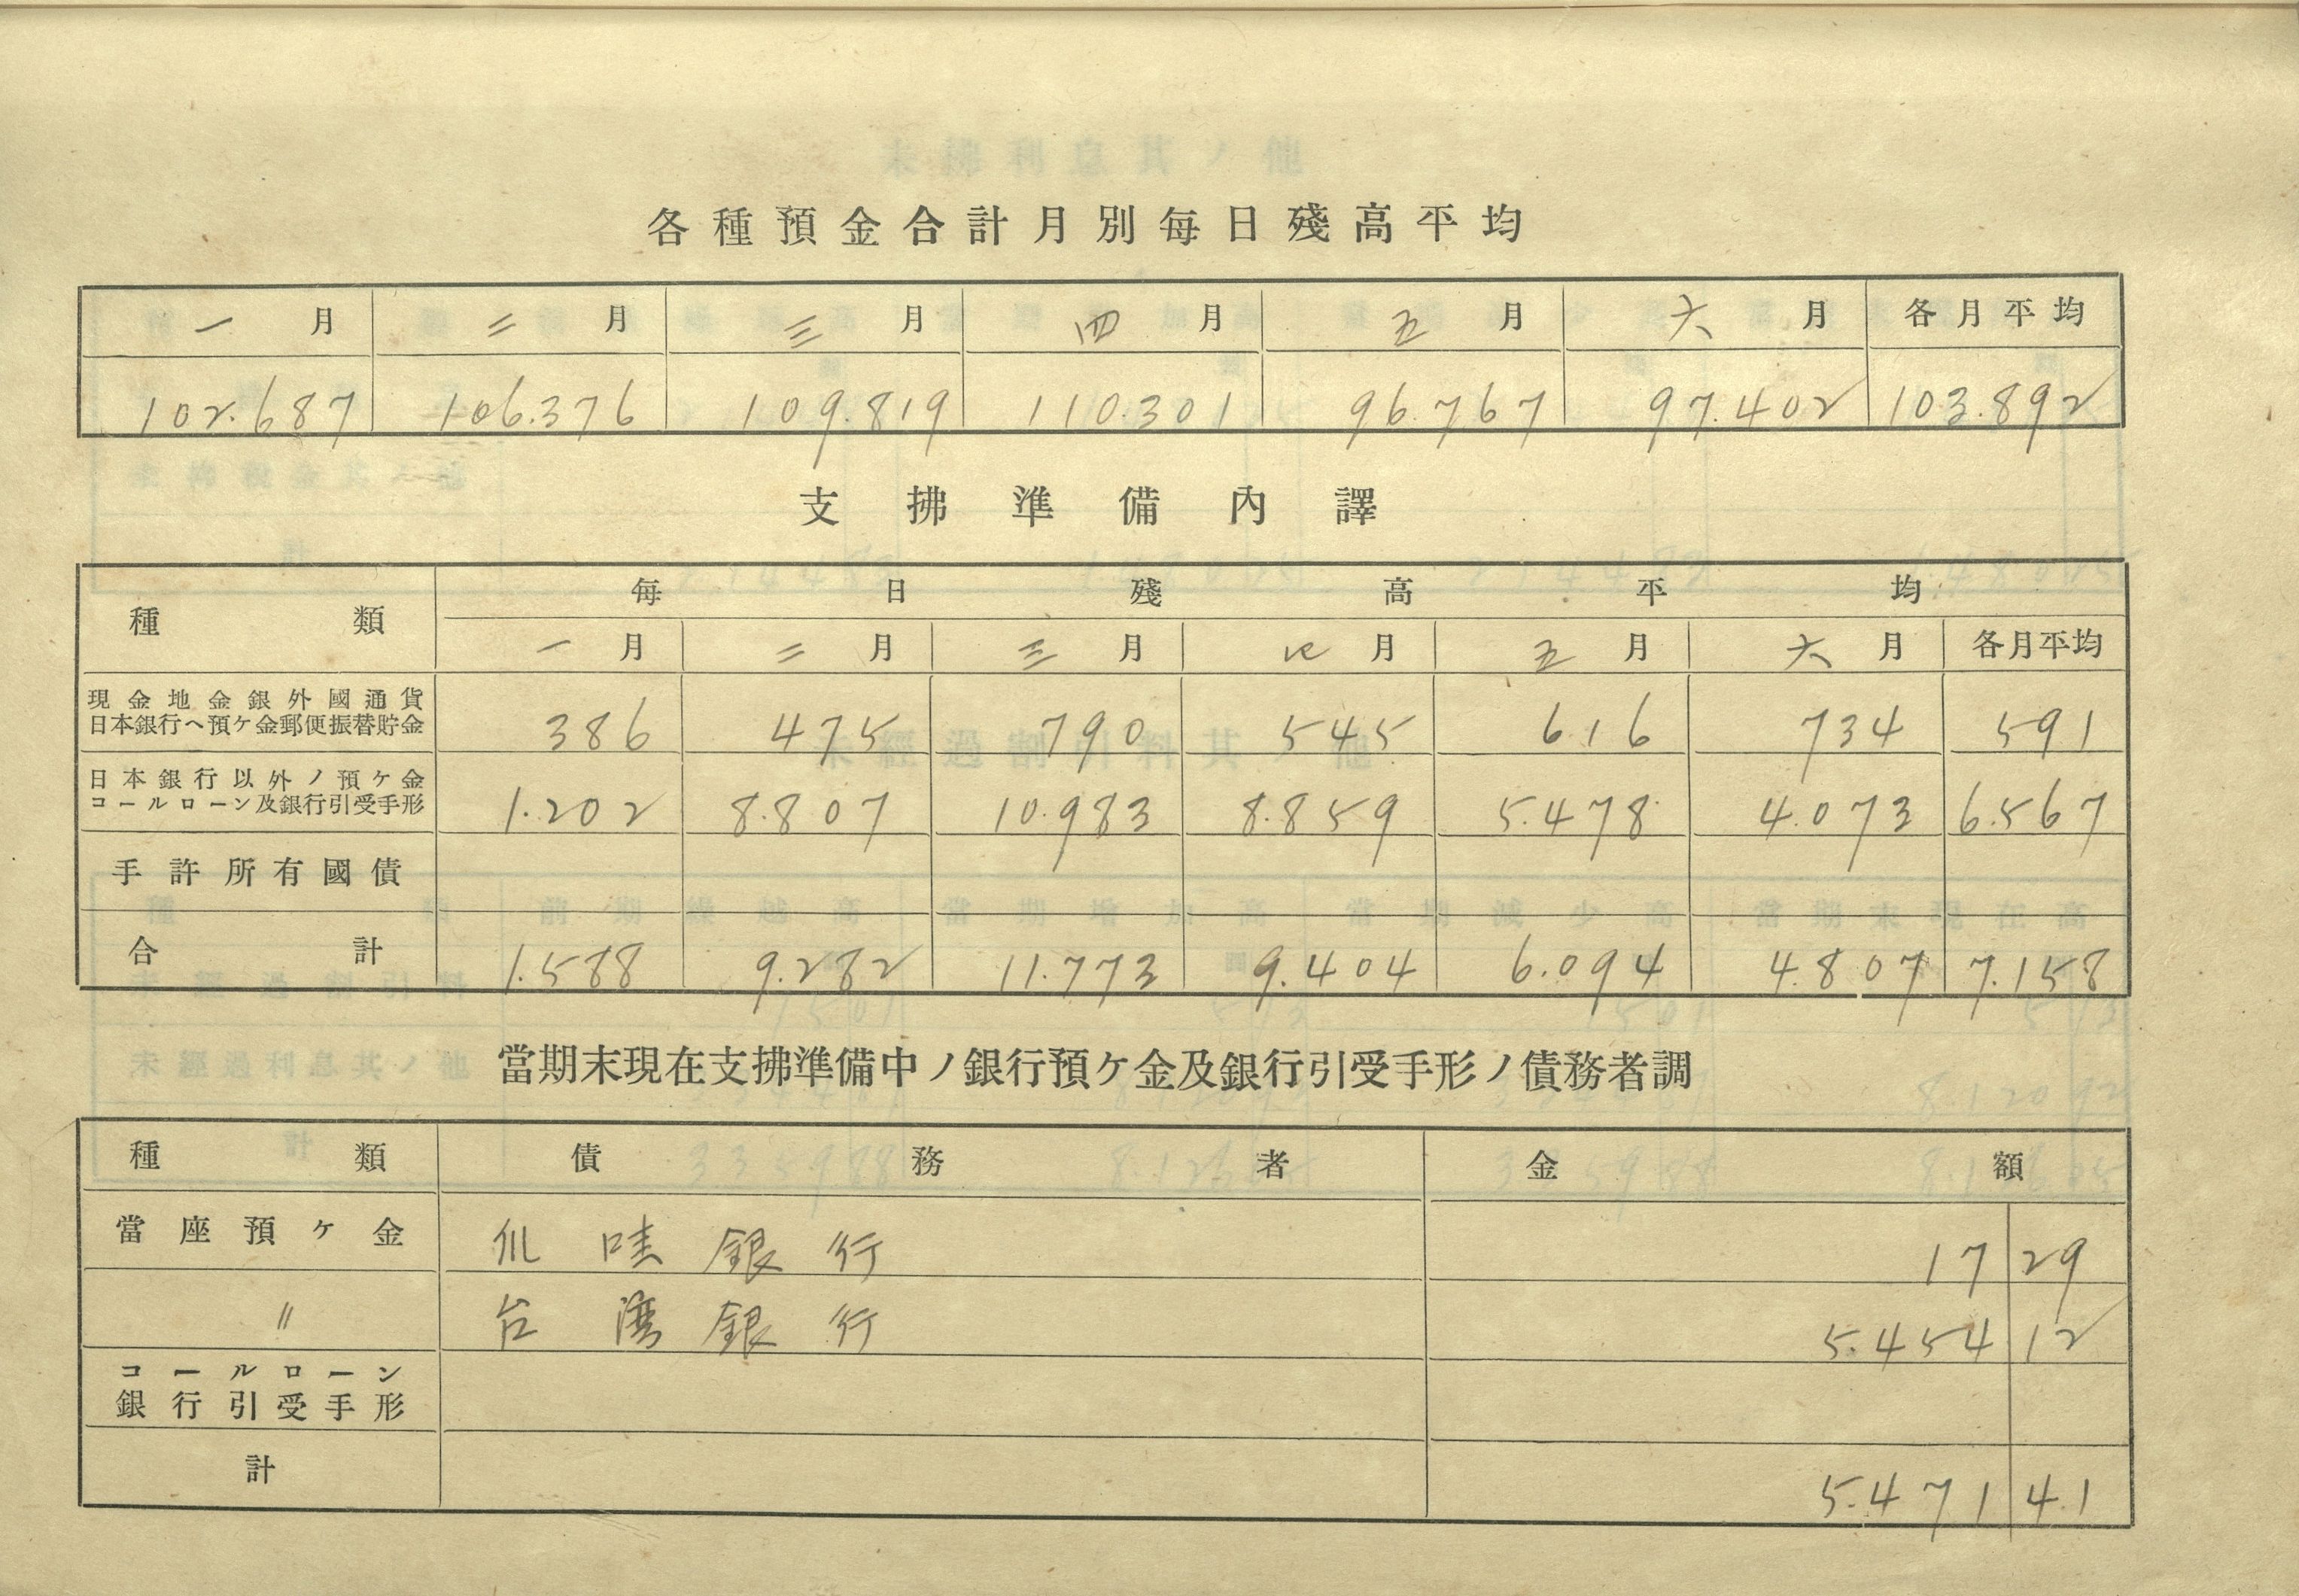 各種預金合計月別每日殘高平均
一月 二月 三月 四月 五月 六月 各月平均
102.687 106.376 109.819 110.301 96.767 97.402 103.892
支拂準備內譯
種類 每日殘高平均
一月 二月 三月 四月 五月 六月 各月平均
現金地金銀外國通貨
日本銀行へ預ケ金郵便振替貯金
386 475 790 545 616 734 591
日本銀行以外ノ預ケ金
コールローン及銀行引受手形
1.202 8.807 10.983 8.859 5.478 4.073 6.567
手許所有國債
合計 1.588 9.282 11.773 9.404 6.094 4.807 7.158
當期末現在支拂準備中ノ銀行預ケ金及銀行引受手形ノ債務者調
種類 債務者 金額
當座預ケ金 爪哇銀行 17 29
〃 台湾銀行 5.454 12
コールローン
銀行引受手形
計 5.471 41